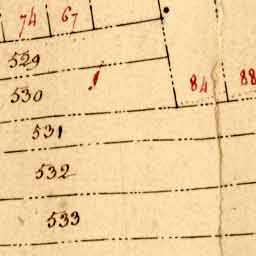 74 67
529
530
84 88
531
532
533